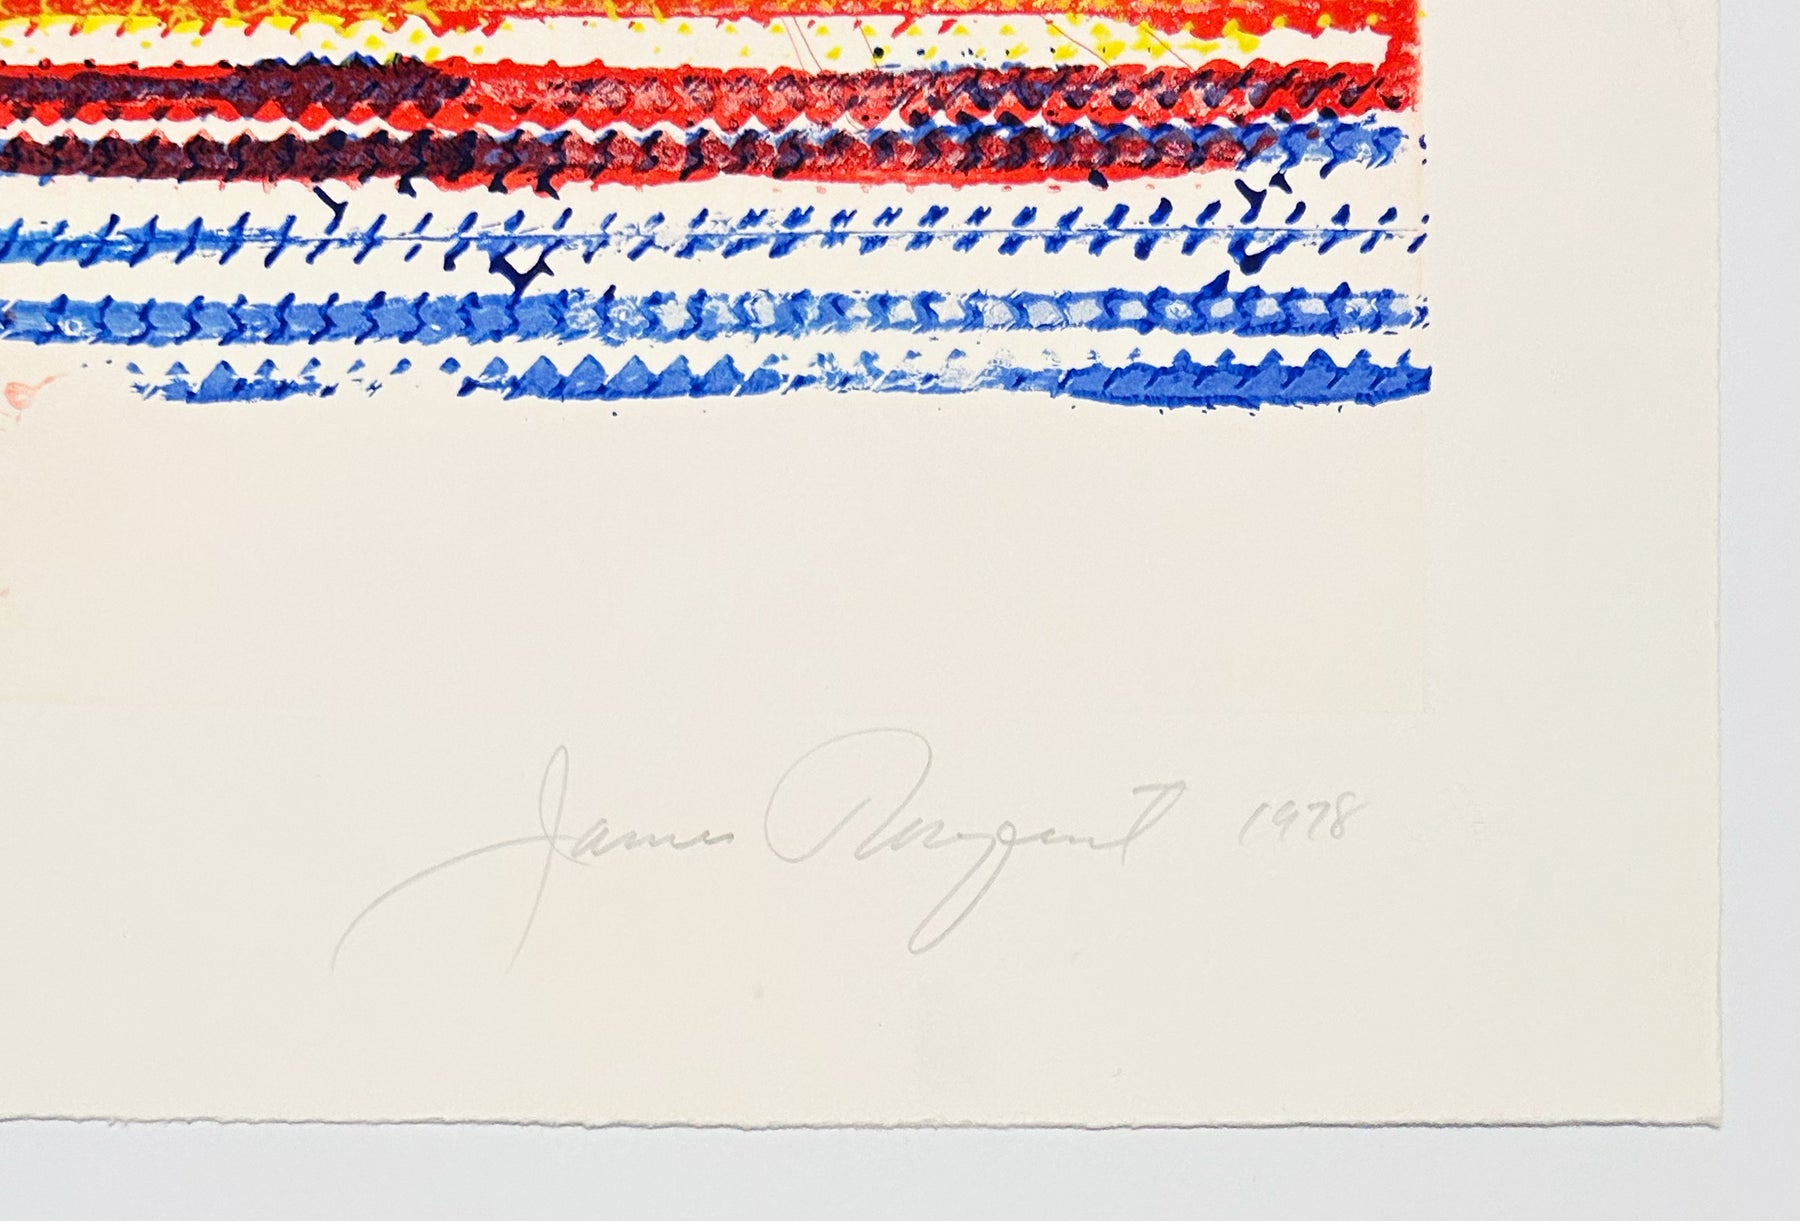 James Rosenquist 1978